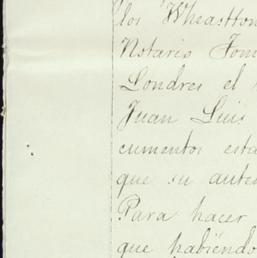 los Wheastton
Notario Tom
Londres el
Juan Luis
cumentos esta
que su auten
Para hacer
que habiendo